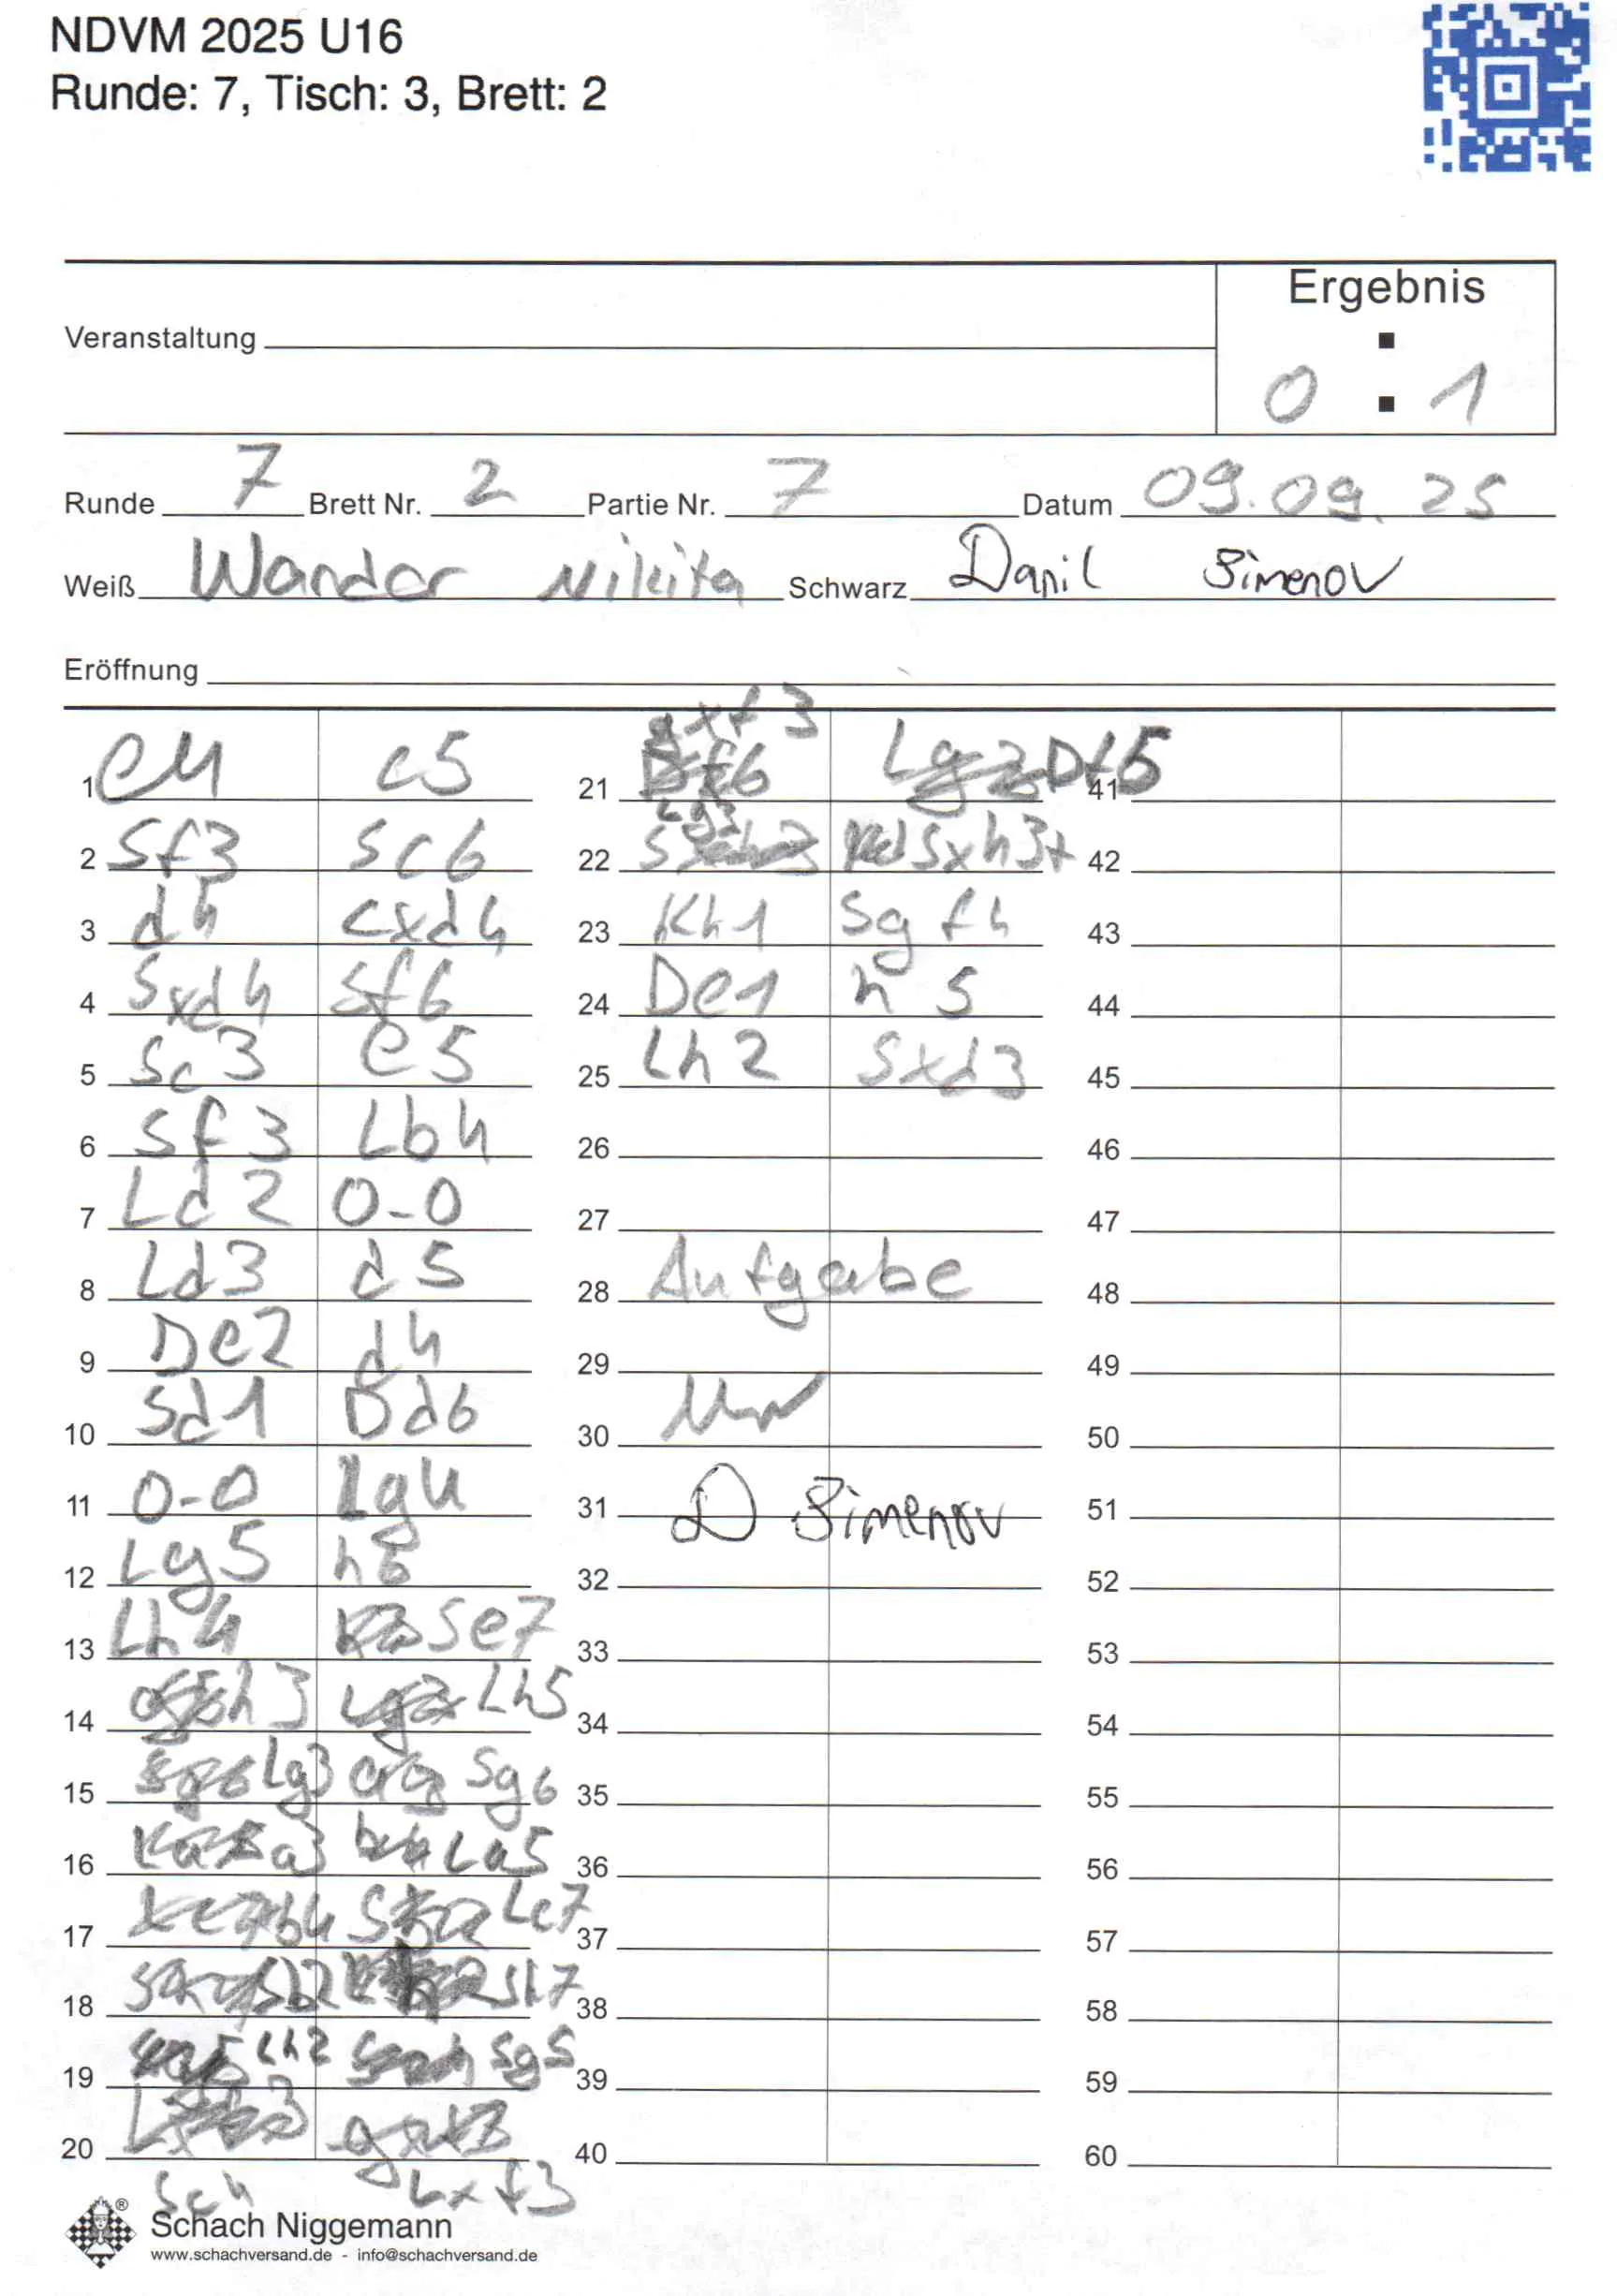 NDVM 2025 U16
Runde: 7, Tisch: 3, Brett: 2
Ergebnis
Veranstaltung
0 : 1
Runde 7 Brett Nr. 2 Partie Nr. 7 Datum 09.09.25
Weiß Wander Nikita Schwarz Danil Simenov
Eröffnung
1 e4 c5
2 Sf3 Sc6
3 d4 cxd4
4 Sxd4 Sf6
5 Sc3 e5
6 Sf3 Lb4
7 Ld2 0-0
8 Ld3 d5
9 De2 d4
10 Sd1 Dd6
11 0-0 Lg4
12 Lg5 h6
13 Lh4 Se7
14 h3 Lh5
15 Lg3 Sg6
16 a3 La5
17 b4 Lc7
18 Sb2 Sh7
19 Lh2 Sg5
20
Sc4 Lxf3
gxf3
21 Df6
Lg3
22 Sxh3+
23 Kh1 Sgf4
24 De1 h5
25 Lh2 Sxd3
26
27
28 Aufgabe
29
30
31 D Simenov
32
33
34
35
36
37
38
39
40
41
42
43
44
45
46
47
48
49
50
51
52
53
54
55
56
57
58
59
60
Schach Niggemann
www.schachversand.de - info@schachversand.de